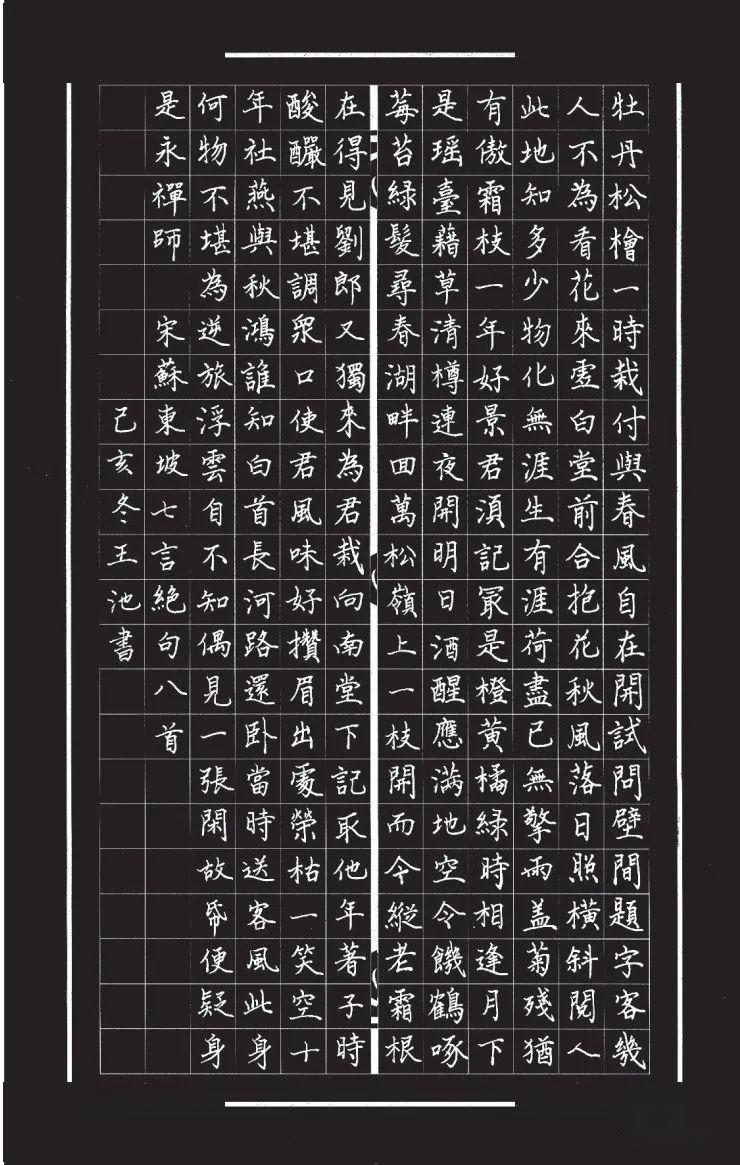 牡丹松檜一時栽付與春風自在開試問壁間題字客幾
人不為看花來虛白堂前合抱花秋風落日照橫斜閱人
此地知多少物化無涯生有涯荷盡已無擎雨盖菊殘猶
有傲霜枝一年好景君須記冣是橙黃橘綠時相逢月下
是瑶臺藉草清樽連夜開明日酒醒應满地空令饑鶴啄
莓苔綠髮尋春湖畔回萬松嶺上一枝開而今縱老霜根
在得見劉郎又獨來為君栽向南堂下記取他年著子時
酸釅不堪調眾口使君風味好攢眉出處榮枯一笑空十
年社燕與秋鴻誰知白首長河路還卧當時送客風此身
何物不堪為逆旅浮雲自不知偶見一張閑故帋便疑身
是永禪師 宋蘇東坡七言絕句八首
己亥冬王池書